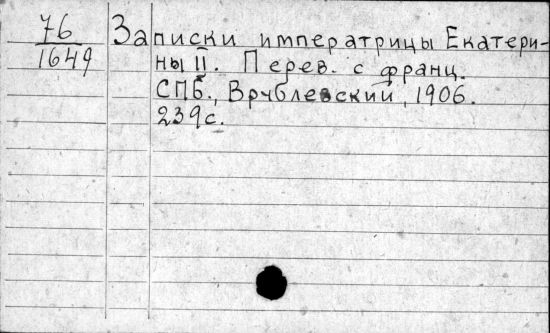 76
1649
Записки императрицы Екатери-
ны II. Перев. с франц.
СПб., Врублевский, 1906.
239с.